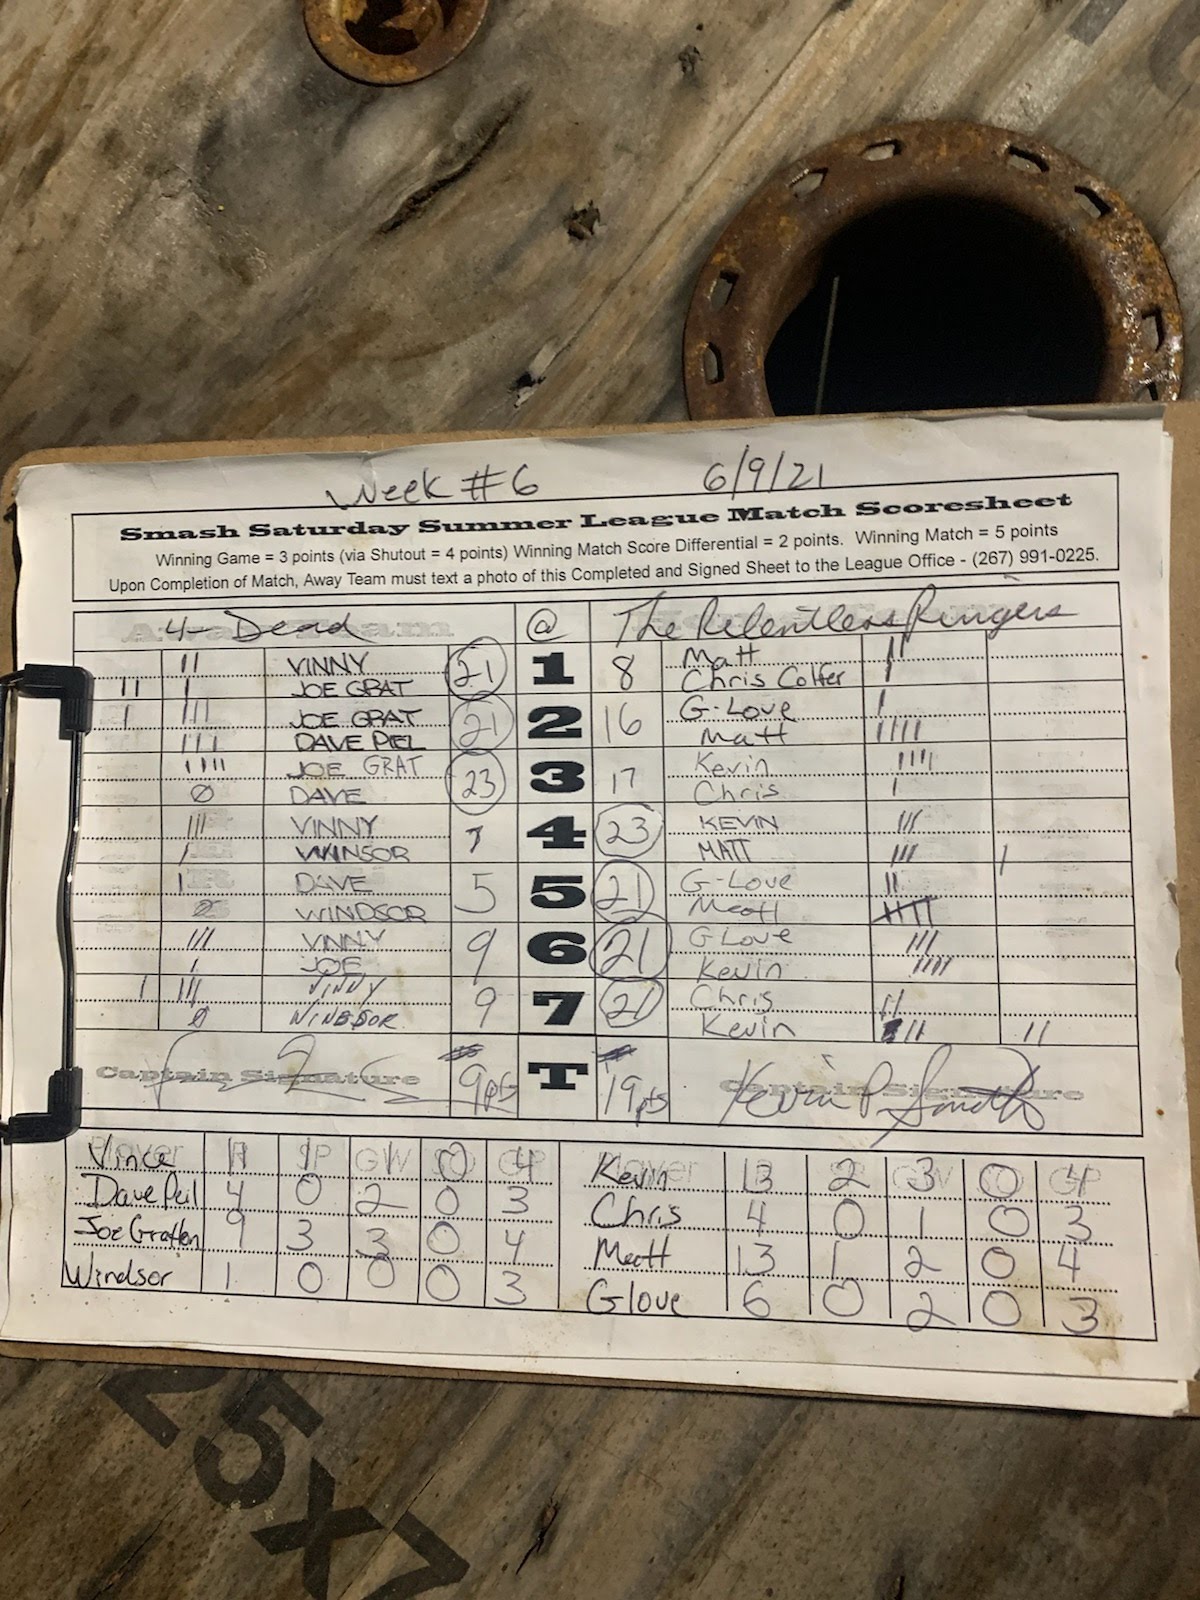 Week #6 6/9/21
Smash Saturday Summer League Match Scoresheet
Winning Game = 3 points (via Shutout = 4 points) Winning Match Score Differential = 2 points. Winning Match = 5 points
Upon Completion of Match, Away Team must text a photo of this Completed and Signed Sheet to the League Office - (267) 991-0225.
4-Dead @ The Relentless Ringers
VINNY 21 1 8 Matt
JOE GRAT Chris Colfer
JOE GRAT 21 2 16 G-Love
DAVE PIEL Matt
JOE GRAT 23 3 17 Kevin
DAVE Chris
VINNY 7 4 23 KEVIN
WINSOR MATT
DAVE 5 5 21 G-Love
WINDSOR Matt
VINNY 9 6 21 G Love
JOE Kevin
VINNY 9 7 21 Chris
WINDSOR Kevin
Captain Signature 9pts T 19pts Captain Signature
Kevin P Smith
Vince 11 1 1 0 4 Kevin 13 2 3 0 4
Dave Peil 4 0 2 0 3 Chris 4 0 1 0 3
Joe Gratten 9 3 3 0 4 Matt 13 1 2 0 4
Windsor 1 0 0 0 3 Glove 6 0 2 0 3
25x7